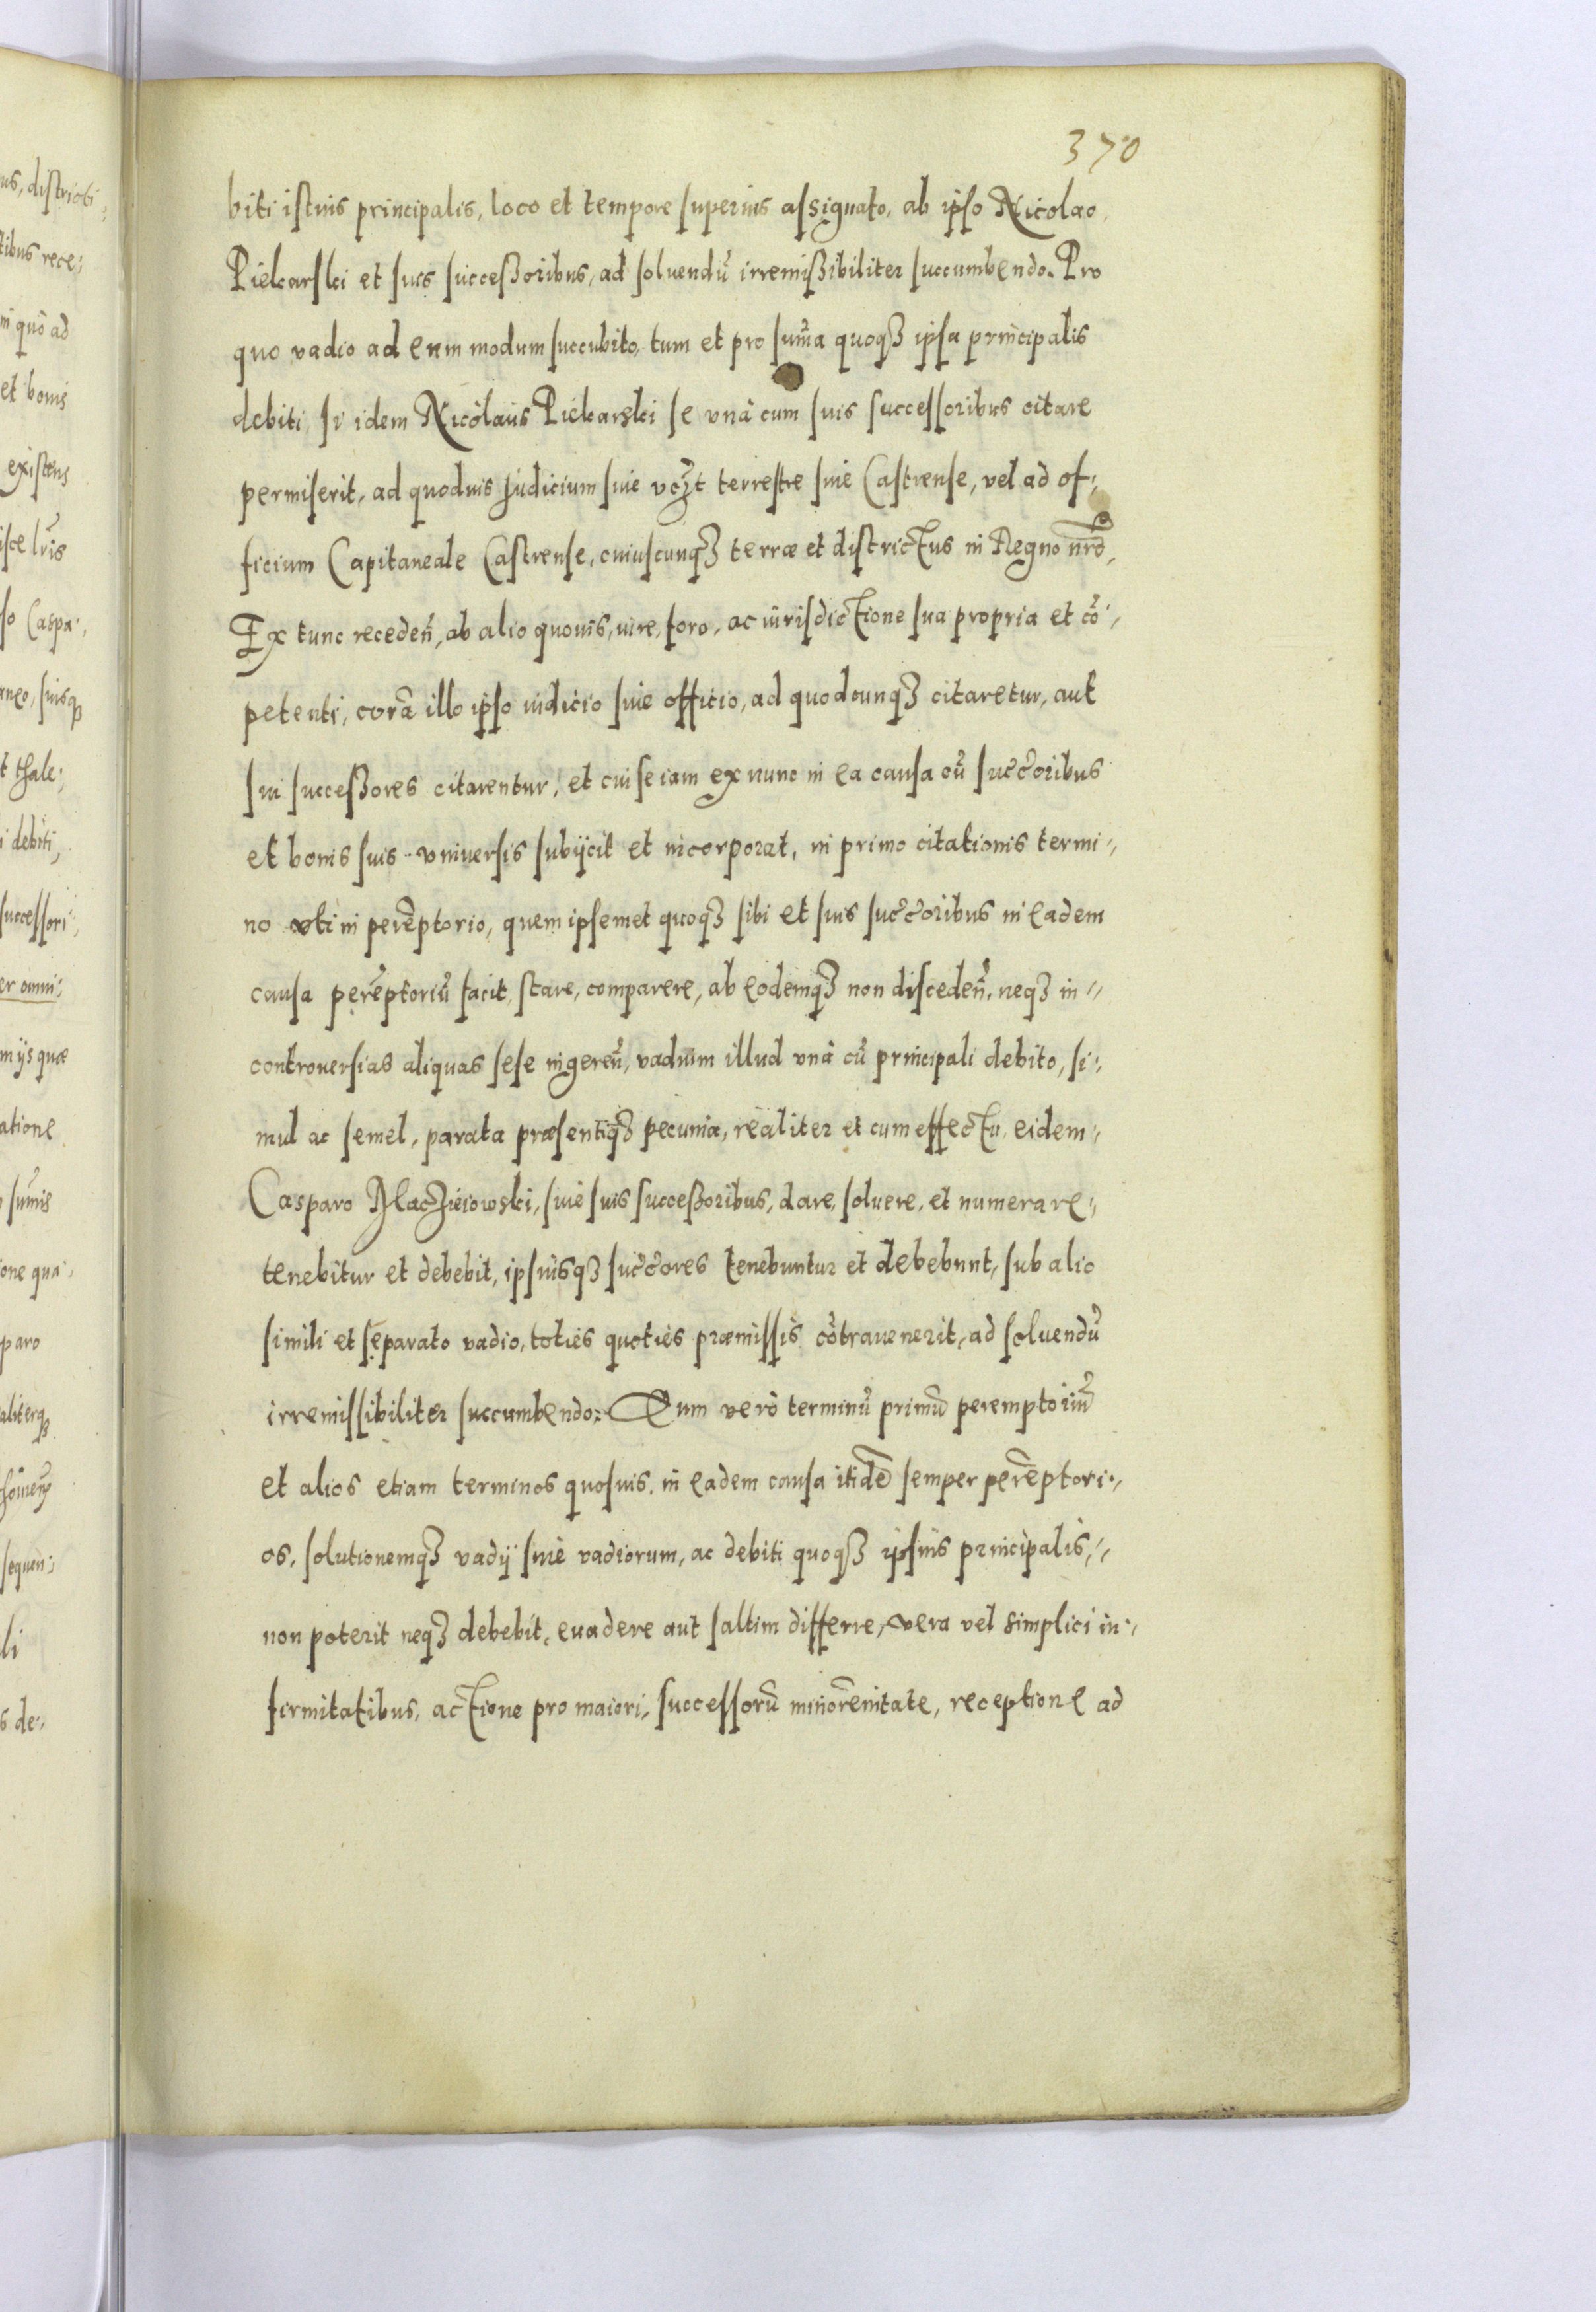 370
biti istius principalis, loco et tempore superius assignato, ab ipso Nicolao
Piekarski et suis successoribus, ad soluendũ irremissibiliter succumbendo. Pro
quo vadio ad eum modum succubito, tum et pro sum̃a quoqȝ ipsa principalis
debiti, si idem Nicolaus Piekarski se vnà cum suis successoribus citare
permiserit, ad quoduis Judicium siue vcȝt terrestre siue Castrense, vel ad of-
ficium Capitaneale Castrense, cuiuscunqȝ terræ et districtus in Regno nr̃o,
Ex tunc recedeñ, ab alio quouis, iure, foro, ac iurisdictione sua propria et cõ-
petenti, corã illo ipso iudicio siue officio, ad quodcunqȝ citaretur, aut
sui successores citarentur, et cui se iam ex nunc in ea causa cũ succ̃oribus
et bonis suis vniuersis subijcit et incorporat, in primo citationis termi-
no vti in perẽptorio, quem ipsemet quoqȝ sibi et suis succ̃oribus in eadem
causa perẽptoriũ facit, stare, comparere, ab eodemqȝ non discedeñ, neqȝ in
controuersias aliquas sese ingereñ, vadium illud vnà cũ principali debito, si-
mul ac semel, parata præsentiqȝ pecunia, realiter et cum effectu, eidem
Casparo Maczieiowski, siue suis successoribus, dare, soluere, et numerare
tenebitur et debebit, ipsiusqȝ succ̃ores tenebuntur et debebunt, sub alio
simili et separato vadio, toties quoties præmissis cõtrauenerit, ad soluendũ
irremissibiliter succumbendo: Quem verò terminũ primũ peremptoriũ
et alios etiam terminos quosuis, in eadem causa itidẽ semper perẽptori-
os, solutionemqȝ vadij siue vadiorum, ac debiti quoqȝ ipsius principalis,
non poterit neqȝ debebit, euadere aut saltim differre, vera vel simplici in-
firmitatibus, actione pro maiori, successorũ minorẽnitate, receptione ad